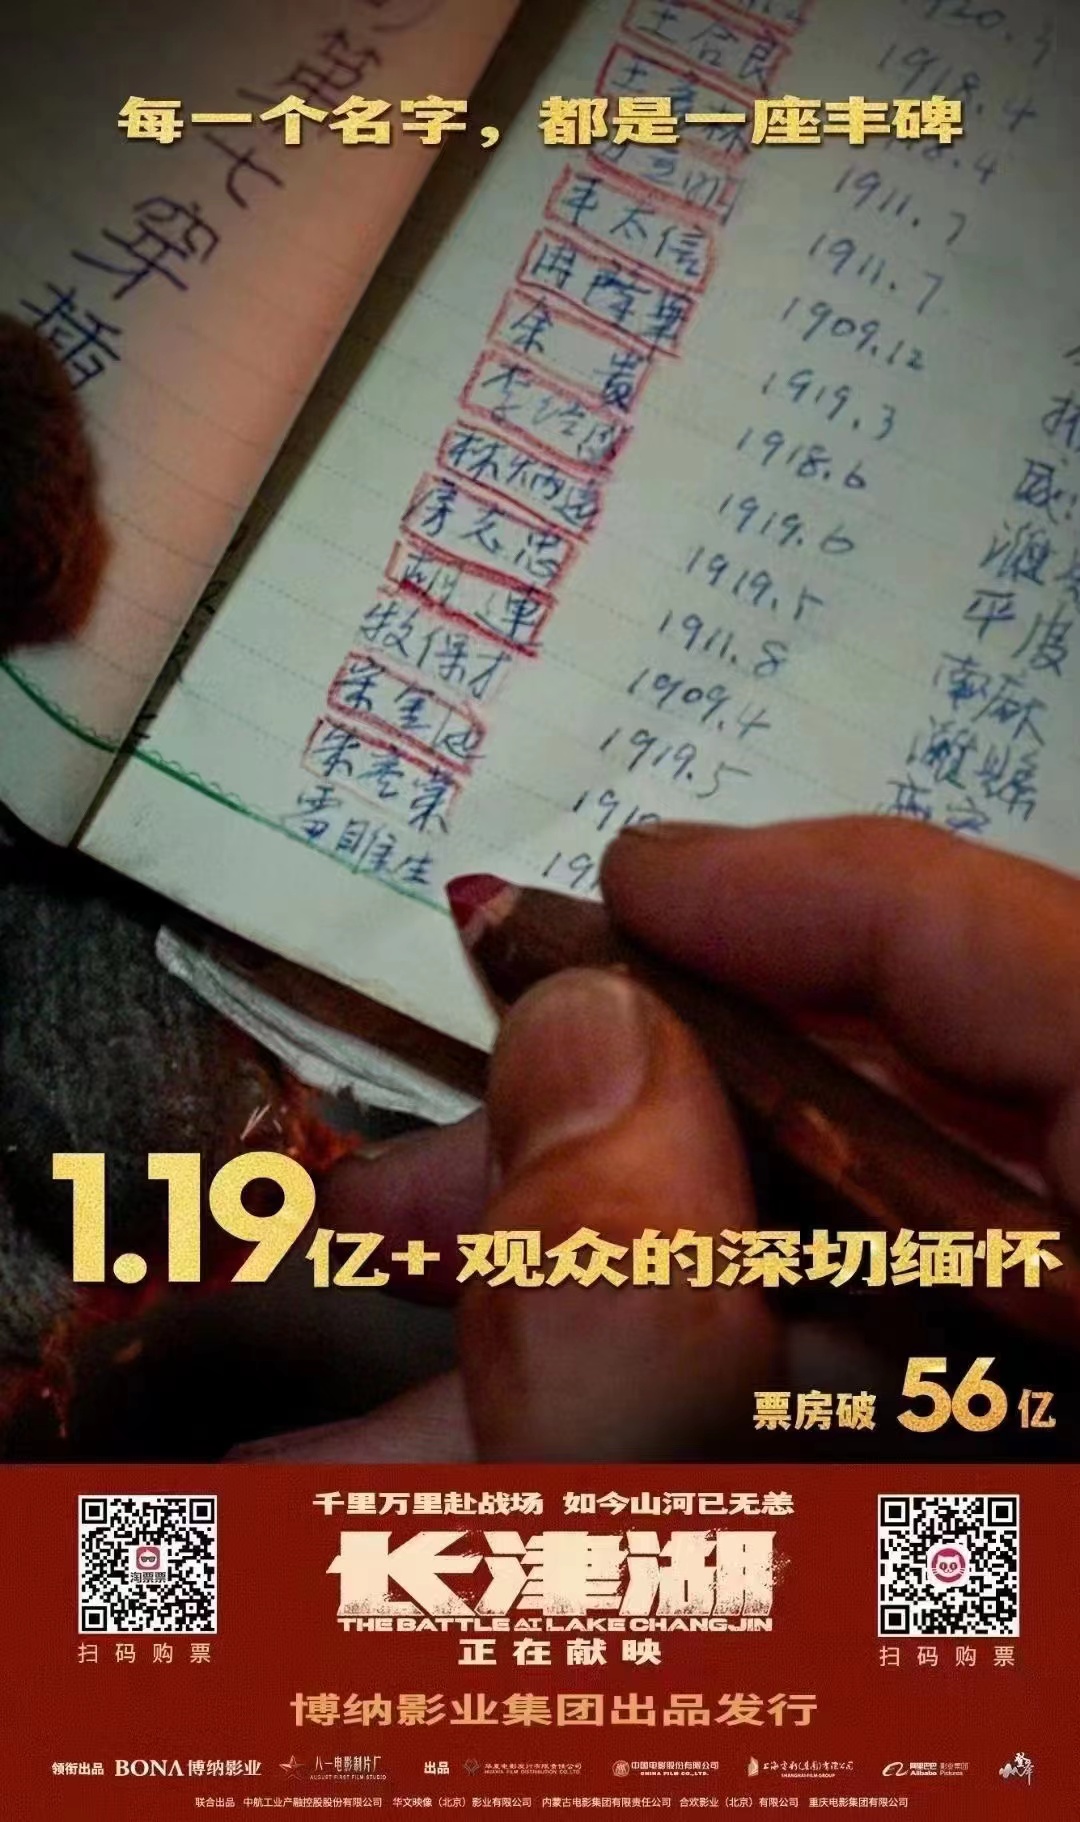 每一个名字，都是一座丰碑
第七穿插
1920.3
王合良 1918.4
1911.7
1911.7
1909.12
余贵 1919.3
1918.6
林炳远 1919.6
房志忠 1919.5
1911.8
牧保才 1909.4
宋金遠 1919.5
平度
南麻
濰縣
雷睢生
1.19亿+观众的深切缅怀
票房破 56亿
千里万里赴战场 如今山河已无恙
长津湖
THE BATTLE AT LAKE CHANGJIN
正在献映
淘票票
扫码购票
扫码购票
博纳影业集团出品发行
领衔出品 BONA 博纳影业 八一电影制片厂 AUGUST FIRST FILM STUDIO 出品 华夏电影发行有限责任公司 HUAXIA FILM DISTRIBUTION CO.LTD 中国电影股份有限公司 CHINA FILM CO.,LTD. 上海电影(集团)有限公司 SHANGHAI FILM GROUP 阿里巴巴影业集团 Alibaba Pictures 登峰
联合出品 中航工业产融控股股份有限公司 华文映像（北京）影业有限公司 内蒙古电影集团有限责任公司 合欢影业（北京）有限公司 重庆电影集团有限公司